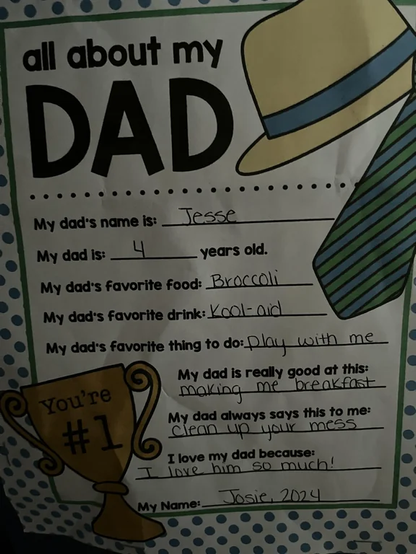 all about my
DAD
My dad's name is: Jesse
My dad is: 4 years old.
My dad's favorite food: Broccoli
My dad's favorite drink: Kool-aid
My dad's favorite thing to do: play with me
My dad is really good at this:
making me breakfast
My dad always says this to me:
clean up your mess
I love my dad because:
I love him so much!
You're
#1
My Name: Josie, 2024